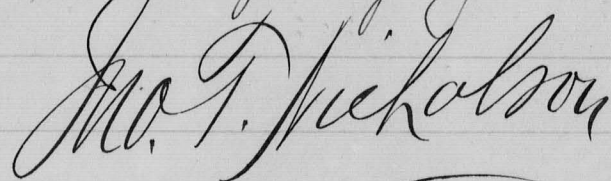 Jno. T. Nicholson